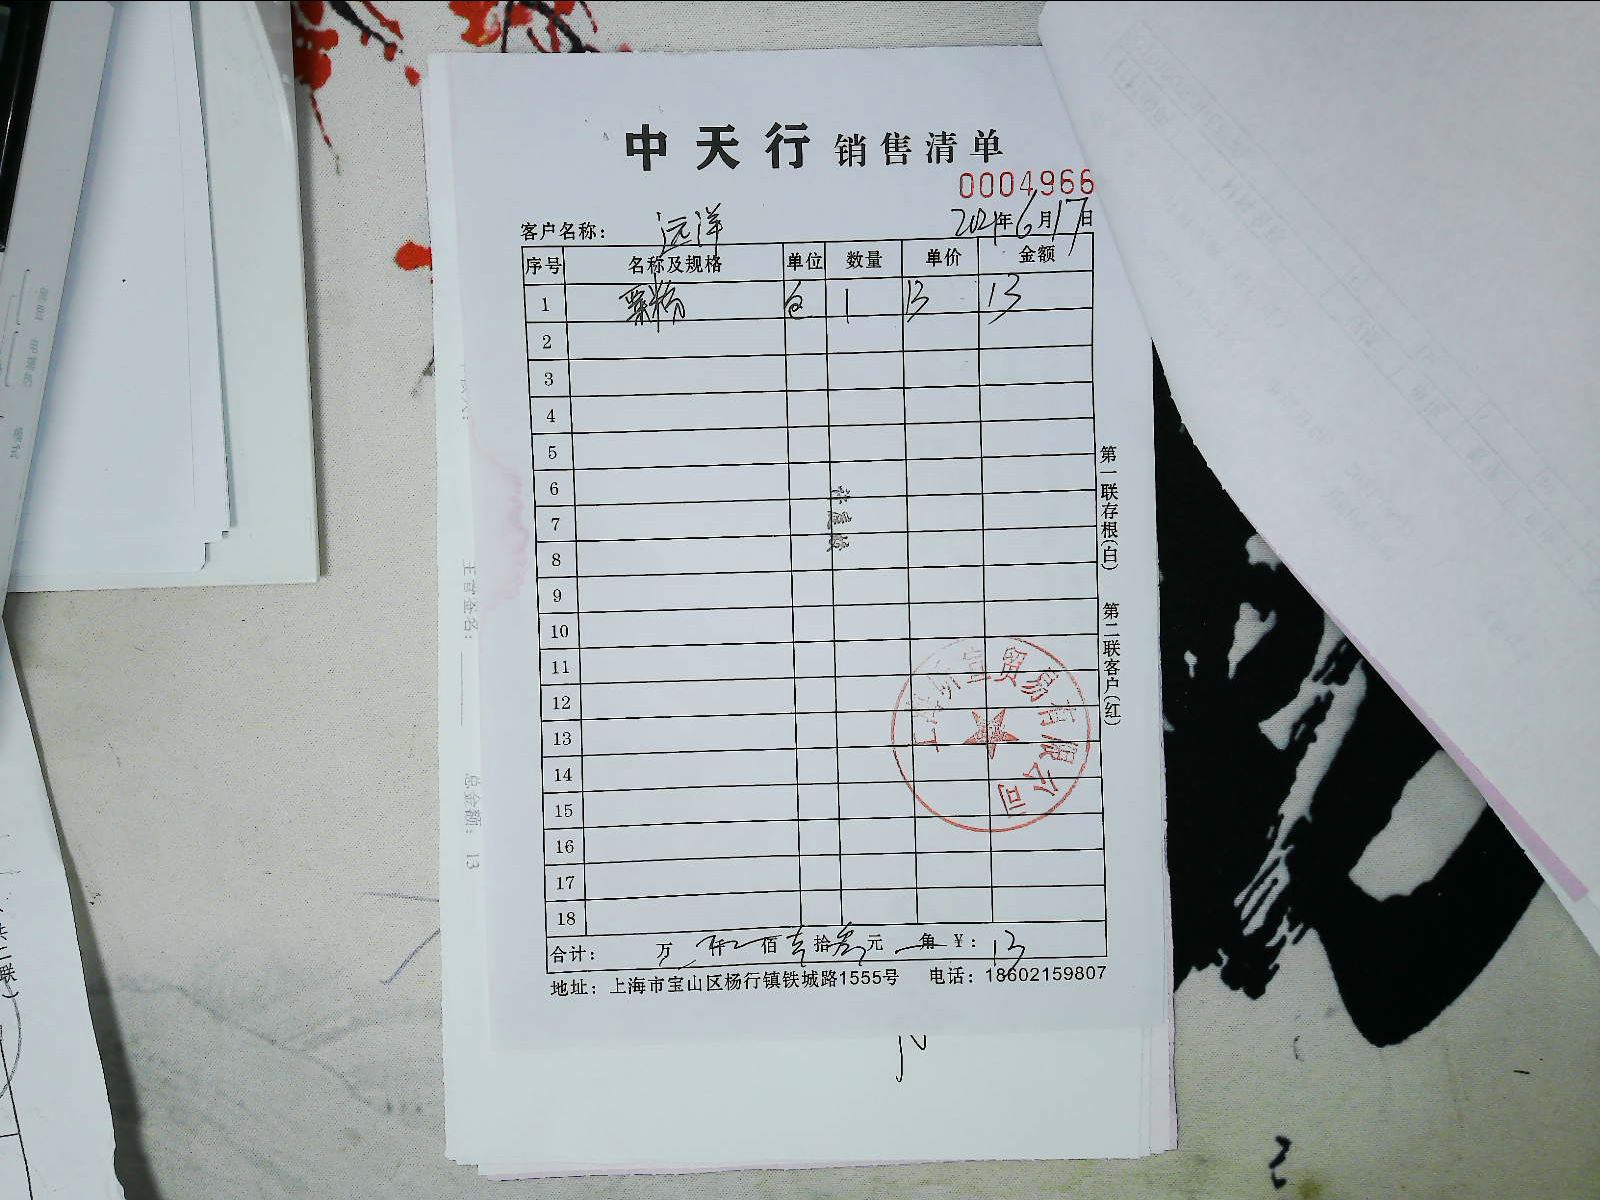 中天行 销售清单
0004966
客户名称: 远洋 2021年6月17日
序号 名称及规格 单位 数量 单价 金额
1 粟粉 包 1 13 13
2
3
4
5
6
7
8
9
10
11
12
13
14
15
16
17
18
合计: 万 仟 佰 壹拾叁元 角 ¥: 13
地址: 上海市宝山区杨行镇铁城路1555号 电话: 18602159807
第一联存根(白) 第二联客户(红)
宣贸易有限公司
主管签名:
总金额: 13